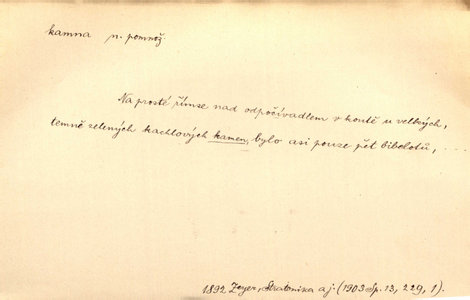 kamna n. pomnož.
Na prosté římse nad odpočívadlem v koutě u velkých,
temně zelených kachlových kamen, bylo asi pouze pět bibelotů, ...
1892 Zeyer, Stratonika a j. (1903 Sp. 13, 229, 1).